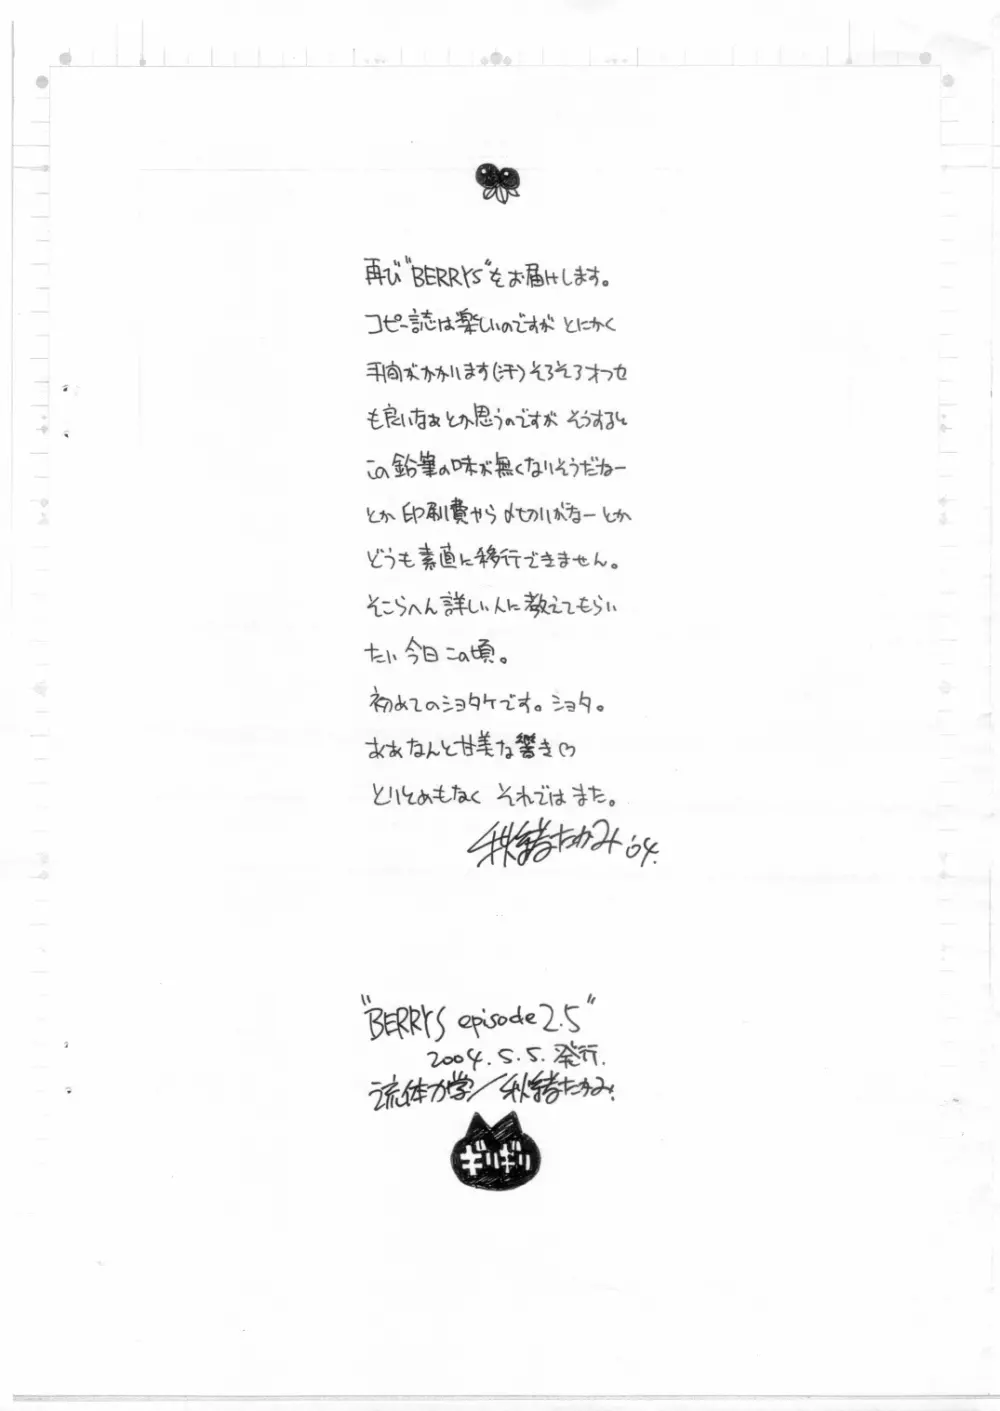 再び"BERRYS"をお届けします。
コピー誌は楽しいのですが とにかく
手間がかかります(汗)そろそろオフセ
も良いなぁとか思うのですが そうすると
この鉛筆の味が無くなりそうだなー
とか 印刷費やら〆切りがなー とか
どうも素直に移行できません。
そこらへん詳しい人に教えてもらい
たい 今日この頃。
初めてのショタケです。ショタ。
ああなんと甘美な響き♡
とりとめもなく それではまた。
秋緒たかみ '04.
"BERRYS episode 2.5"
2004.5.5.発行.
流体力学/秋緒たかみ.
ギリギリ